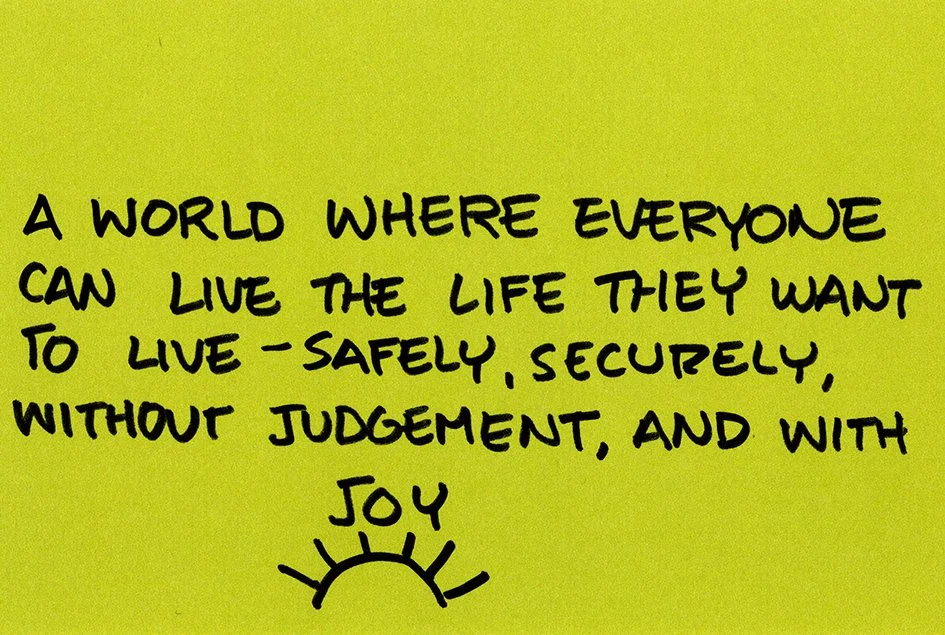 A WORLD WHERE EVERYONE
CAN LIVE THE LIFE THEY WANT
TO LIVE - SAFELY, SECURELY,
WITHOUT JUDGEMENT, AND WITH
JOY